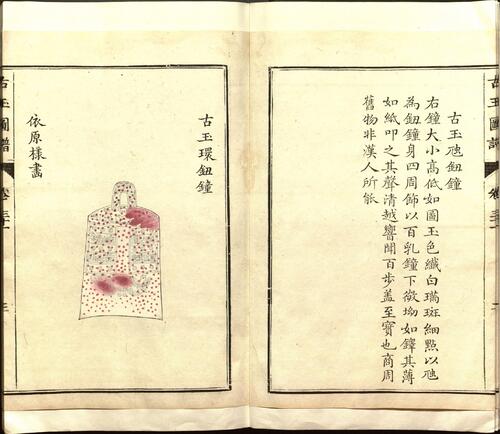 古玉虺鈕鐘
右鐘大小高低如圖玉色纖白璊斑細點以虺
為鈕鐘身四周飾以百乳鐘下欹坳如鐸其薄
如紙叩之其聲清越響聞百步盖至寶也商周
舊物非漢人所能
古玉環鈕鐘
依原樣畫
古玉圖譜
卷
古玉圖譜
卷